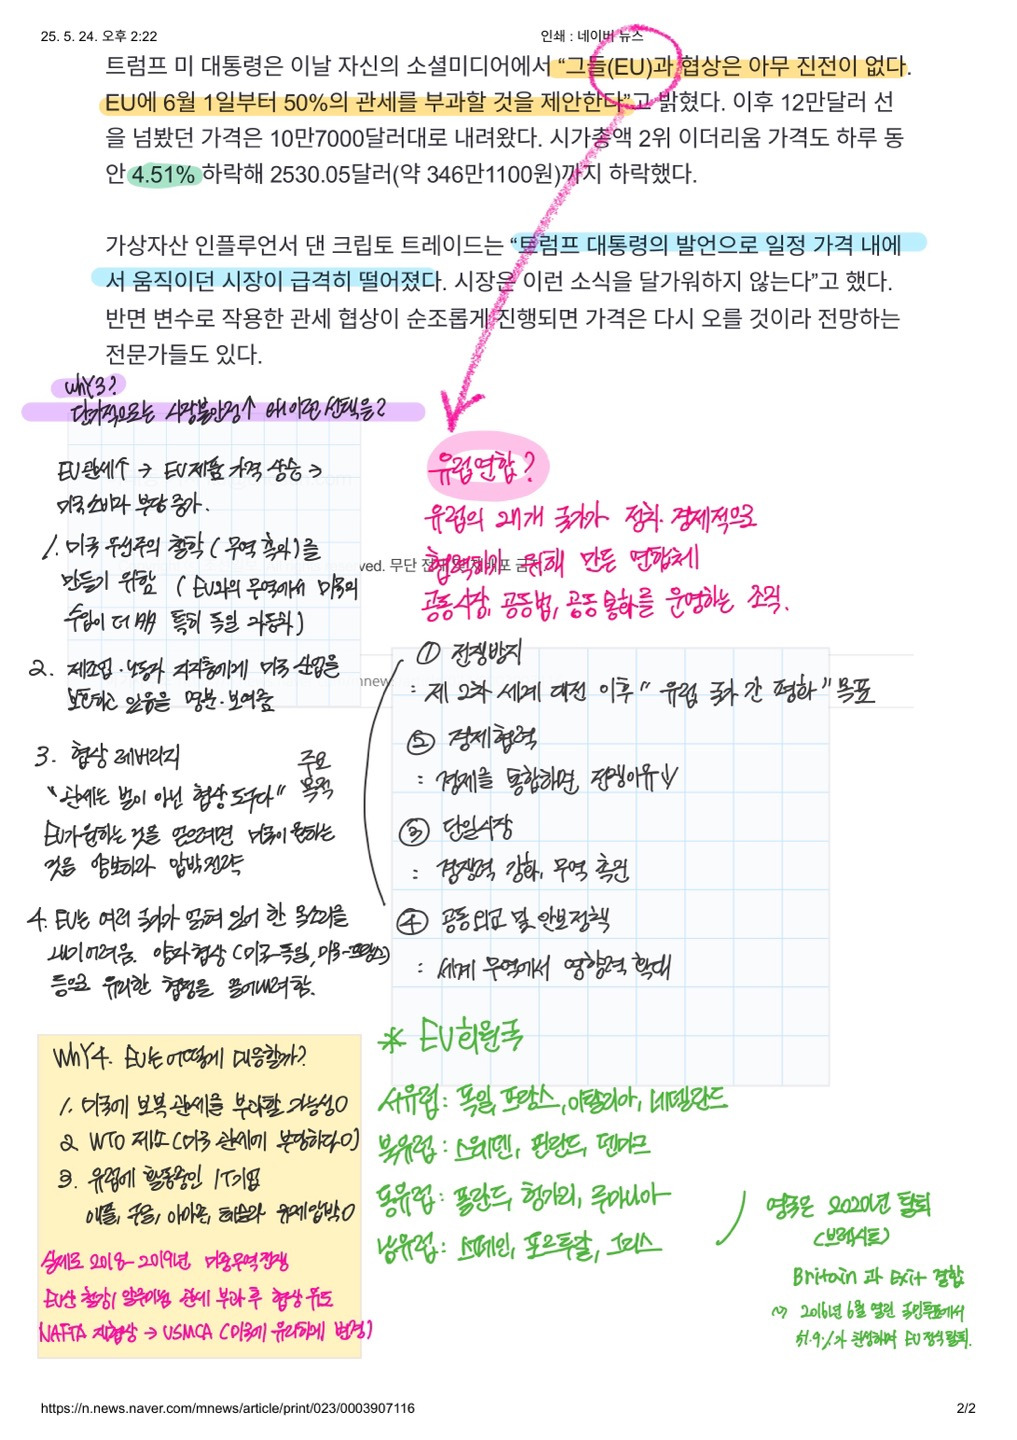 25. 5. 24. 오후 2:22
인쇄 : 네이버 뉴스
트럼프 미 대통령은 이날 자신의 소셜미디어에서 “그들(EU)과 협상은 아무 진전이 없다.
EU에 6월 1일부터 50%의 관세를 부과할 것을 제안한다”고 밝혔다. 이후 12만달러 선
을 넘봤던 가격은 10만7000달러대로 내려왔다. 시가총액 2위 이더리움 가격도 하루 동
안 4.51% 하락해 2530.05달러(약 346만1100원)까지 하락했다.
가상자산 인플루언서 댄 크립토 트레이드는 “트럼프 대통령의 발언으로 일정 가격 내에
서 움직이던 시장이 급격히 떨어졌다. 시장은 이런 소식을 달가워하지 않는다”고 했다.
반면 변수로 작용한 관세 협상이 순조롭게 진행되면 가격은 다시 오를 것이라 전망하는
전문가들도 있다.
why3?
단기적으로는 시장불안정↑ 왜 이런 선택을?
EU관세↑ → EU제품 가격 상승 →
미국소비자 부담 증가.
1. 미국 우선주의 철학 (무역 흑자)를
만들기 위함 (EU와의 무역에서 미국의
수입이 더 多 특히 독일 자동차)
2. 제조업·노동자 지지층에게 미국 산업을
보호하고 있음을 명분·보여줌
3. 협상 레버리지
주요
목적
“관세는 벌이 아닌 협상 도구다”
EU가 원하는 것을 얻으려면 미국이 원하는
것을 양보하라 압박전략
4. EU는 여러 국가가 얽혀 있어 한 목소리를
내기 어려움. 양자협상 (미국-독일, 미국-프랑스)
등으로 유리한 협정을 끌어내려 함.
유럽연합?
유럽의 27개 국가가 정치·경제적으로
협력하기 위해 만든 연합체
ved. 무단 전재
공동시장, 공동법, 공동통화를 운영하는 조직.
① 전쟁방지
: 제 2차 세계 대전 이후 “유럽 국가 간 평화” 목표
② 경제협력
: 경제를 통합하면 전쟁이유↓
③ 단일시장
: 경쟁력 강화, 무역 촉진
④ 공동외교 및 안보정책
: 세계 무역에서 영향력 확대
* EU회원국
서유럽 : 독일, 프랑스, 이탈리아, 네덜란드
북유럽 : 스웨덴, 핀란드, 덴마크
동유럽 : 폴란드, 헝가리, 루마니아
남유럽 : 스페인, 포르투갈, 그리스
영국은 2020년 탈퇴
(브렉시트)
Britain 과 Exit 결합
2016년 6월 열린 국민투표에서
51.9%가 찬성하며 EU 정식 탈퇴.
why4. EU는 어떻게 대응할까?
1. 미국에 보복 관세를 부과할 가능성O
2. WTO 제소 (미국 관세에 부당하다O)
3. 유럽에 활동중인 IT기업
애플, 구글, 아마존, 테슬라 규제압박O
실제로 2018-2019년 미중무역전쟁
EU산 철강, 알루미늄 관세 부과 후 협상 유도
NAFTA 재협상 → USMCA (미국에 유리하게 변경)
https://n.news.naver.com/mnews/article/print/023/0003907116
2/2